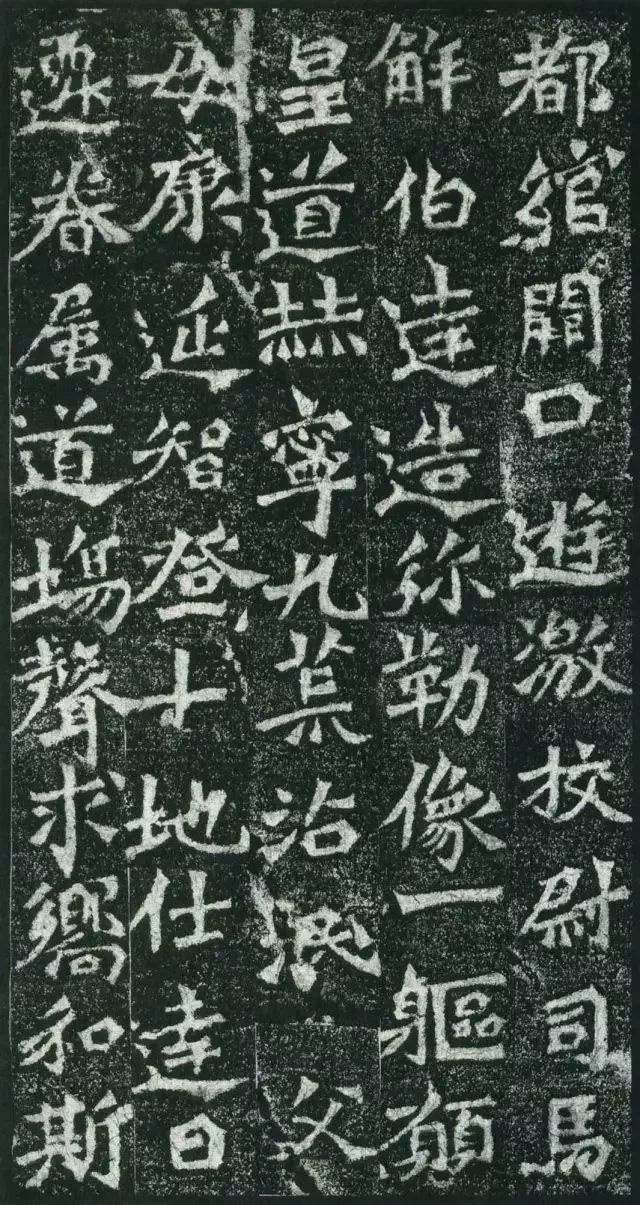 都綰闕口遊激校尉司馬
觧伯達造弥勒像一軀願
皇道赫寧九荒沾泯父
母康延智登十地仕達日
遷眷属道場聲求嚮和斯